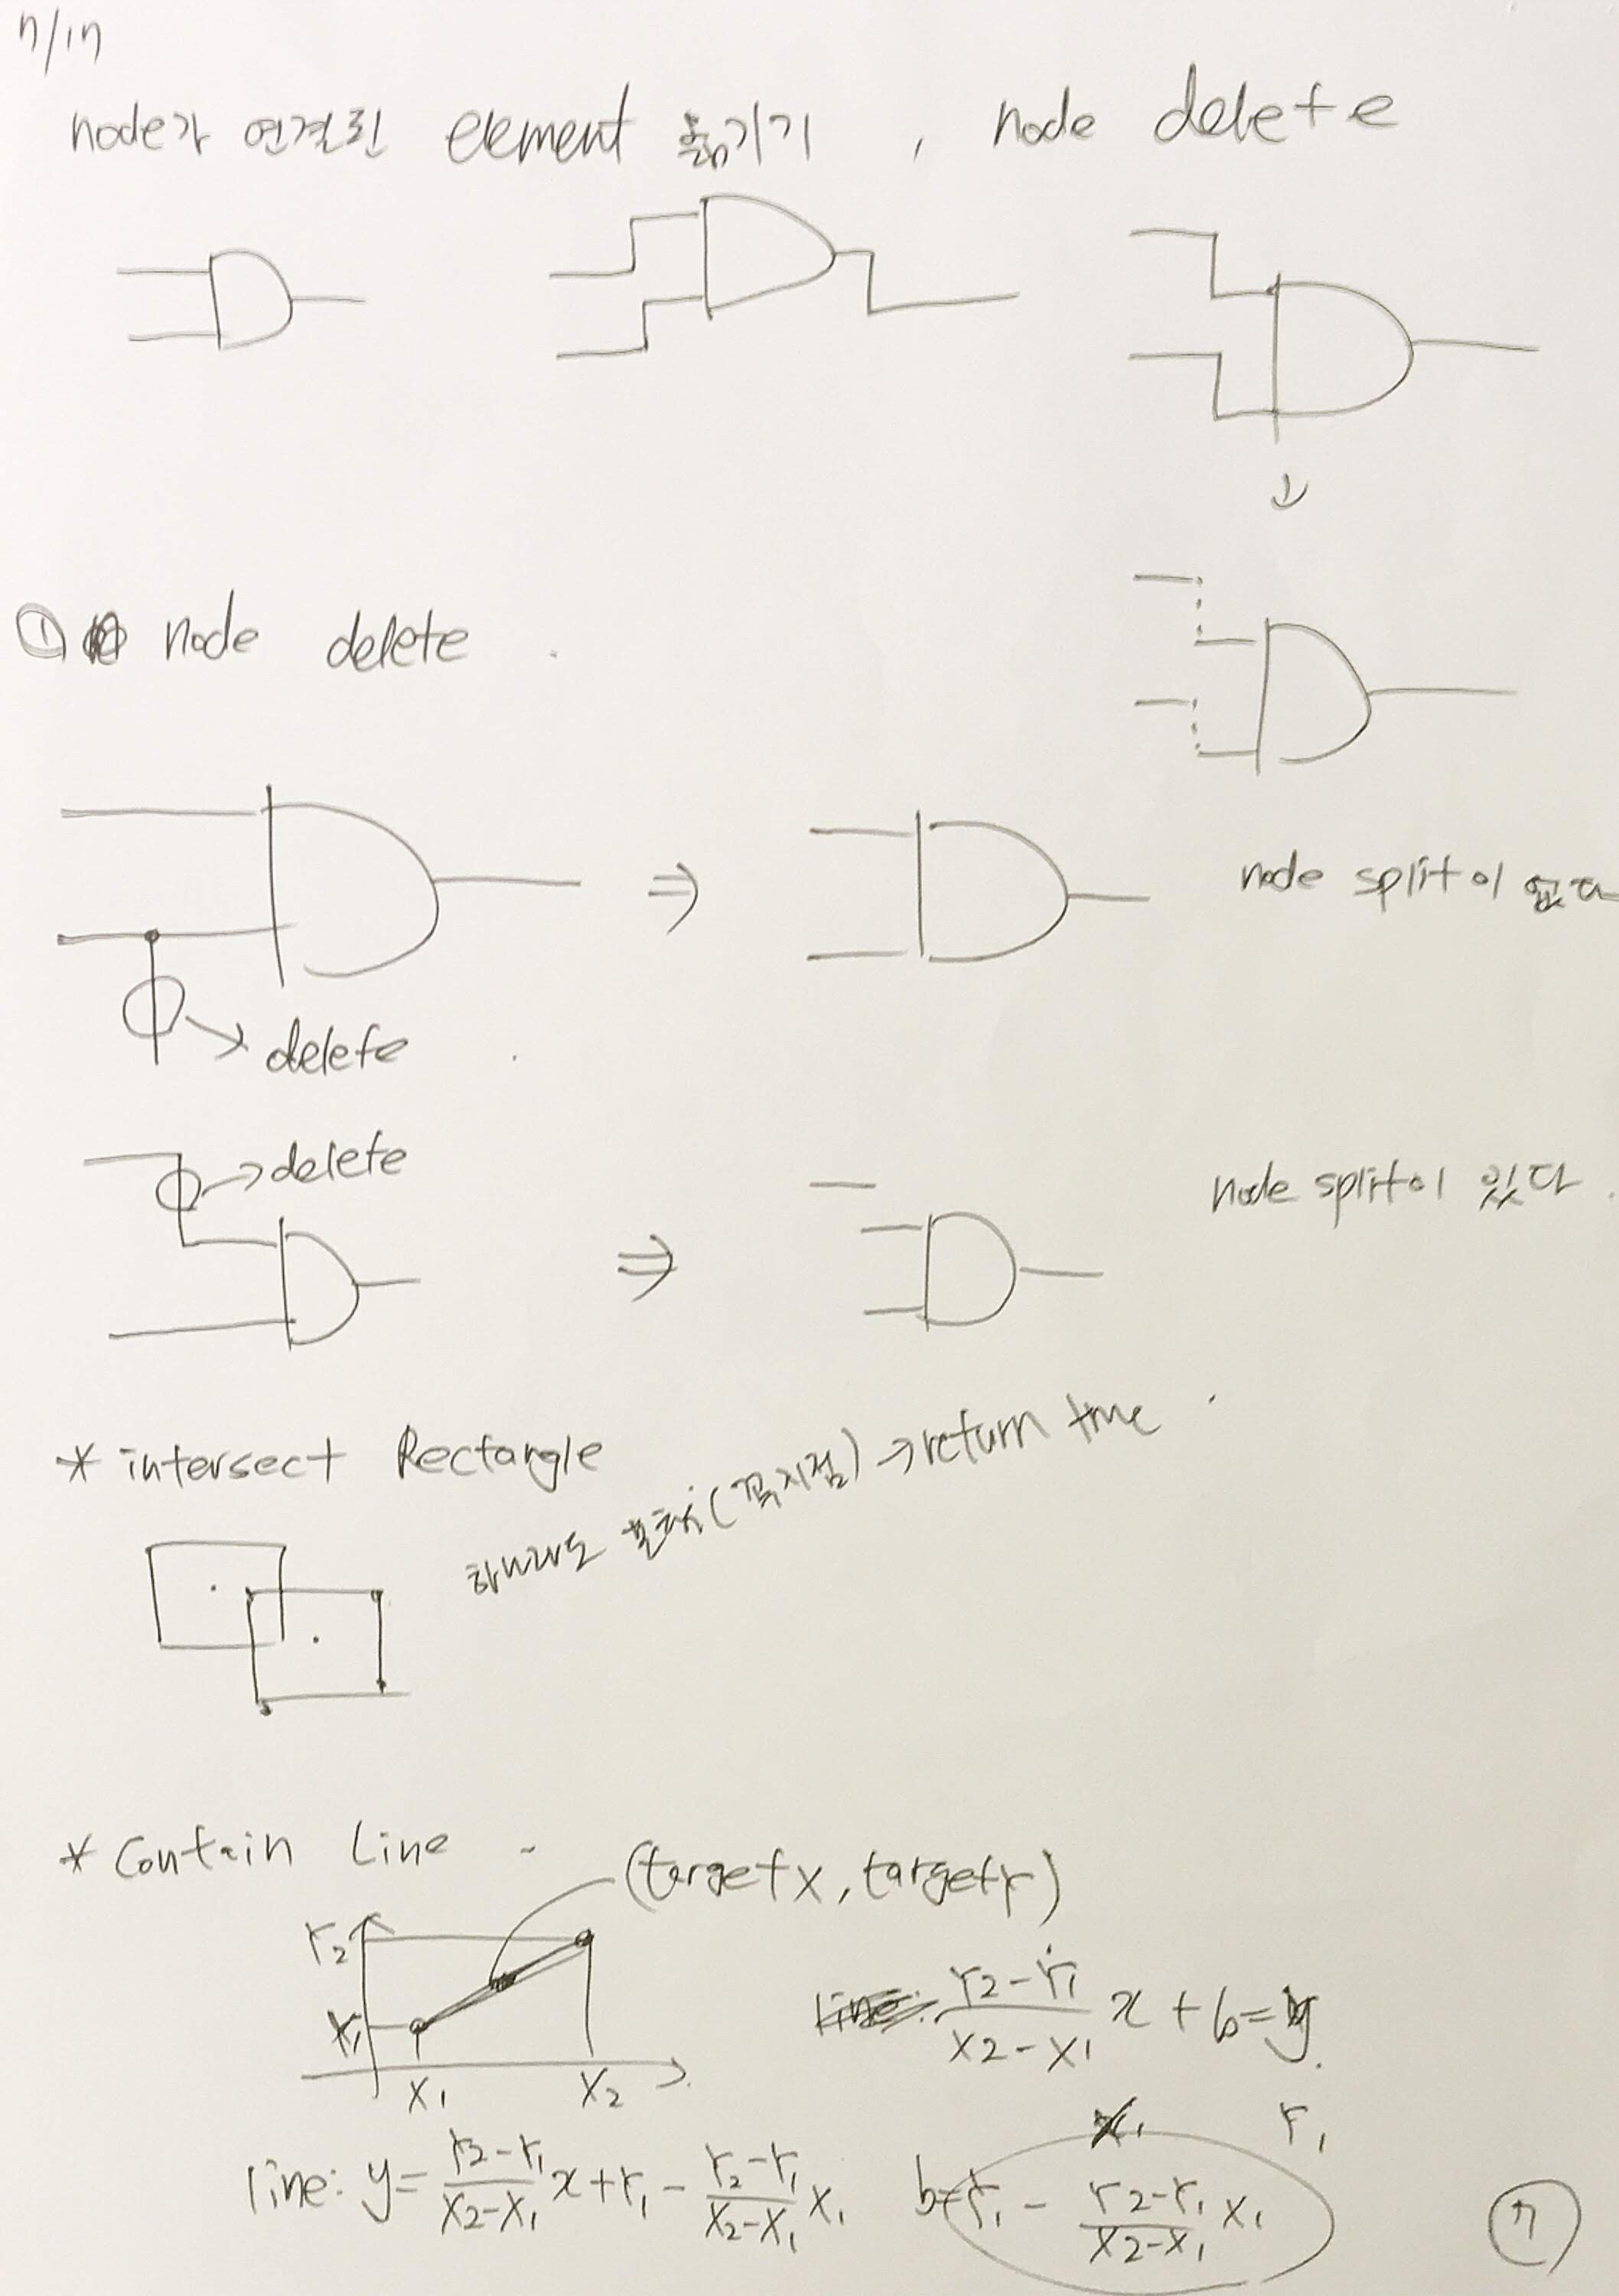 7/17
node가 연결된 element 옮기기 , node delete
① node delete .
node split이 없다
delete
delete
node split이 있다.
* intersect Rectangle
하나라도 포함시 (꼭지점) → return true.
* Contain Line
(targetX, targetY)
Y2
Y1
X1 X2
(Y2-Y1)/(X2-X1) x + b = y.
X1 Y1
line: y = (Y2-Y1)/(X2-X1) x + Y1 - (Y2-Y1)/(X2-X1) X1 b = Y1 - (Y2-Y1)/(X2-X1) X1
7